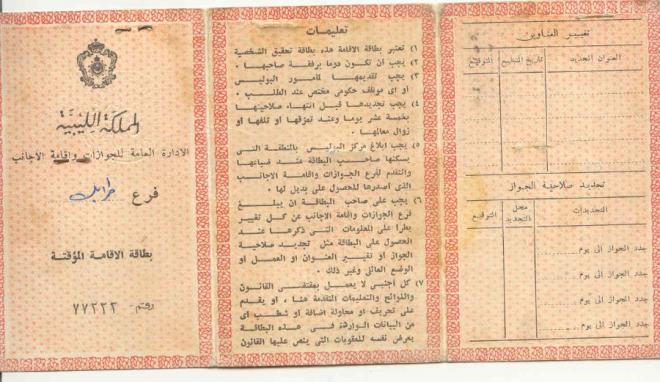 المملكة الليبية
الادارة العامة للجوازات واقامة الاجانب
فرع طرابلس
بطاقة الاقامة المؤقتة
رقم - ٧٧٢٢٢
تعليمات
١) تعتبر بطاقة الاقامة هذه بطاقة تحقيق الشخصية
٢) يجب ان تكون دوما برفقة صاحبها .
٣) يجب تقديمها لمأمور البوليس
أو اى موظف حكومى مختص عند الطلب .
٤) يجب تجديدها قبل انتهاء صلاحيتها
بخمسة عشر يوما وعند تمزقها او تلفها أو
زوال معالمها .
٥) يجب ابلاغ مركز البوليس بالمنطقة التى
يسكنها صاحب البطاقة عند ضياعها
والتقدم لفرع الجوازات واقامة الاجانب
الذى اصدرها للحصول على بديل لها .
٦) يجب على صاحب البطاقة ان يبلغ
فرع الجوازات واقامة الاجانب عن كل تغيير
يطرأ على المعلومات التى ذكرها عند
الحصول على البطاقة مثل تجديد صلاحية
الجواز أو تغيير العنوان او العمل أو
الوضع العائلى وغير ذلك .
٧) كل اجنبى لا يعمل بمقتضى القانون
واللوائح والتعليمات المتقدمة هنا ، او يقدم
على تحريف او محاولة اضافة او شطب اى
من البيانات الواردة فى هذه البطاقة
يعرض نفسه للعقوبات التى ينص عليها القانون
تغيير العناوين
العنوان الجديد تاريخ التبليغ التوقيع
تجديد صلاحية الجواز
التجديدات محل التجديد التوقيع
جدد الجواز الى يوم ....
جدد الجواز الى يوم ....
جدد الجواز الى يوم ....
جدد الجواز الى يوم ....